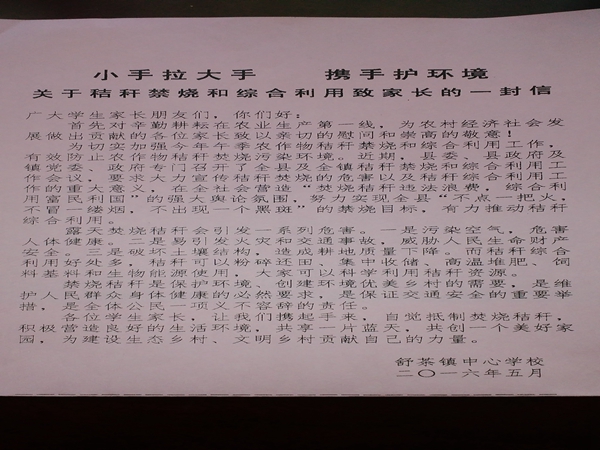 小手拉大手 携手护环境
关于秸秆禁烧和综合利用致家长的一封信
广大学生家长朋友们，你们好：
首先对辛勤耕耘在农业生产第一线，为农村经济社会发
展做出贡献的各位家长致以亲切的慰问和崇高的敬意！
为切实加强今年午季农作物秸秆禁烧和综合利用工作，
有效防止农作物秸秆焚烧污染环境。近期，县委、县政府及
镇党委、政府专门召开了全县及全镇秸秆禁烧和综合利用工
作会议，要求大力宣传秸秆焚烧的危害以及秸秆综合利用工
作的重大意义，在全社会营造“焚烧秸秆违法浪费，综合利
用富民利国”的强大舆论氛围，努力实现全县“不点一把火，
不冒一缕烟，不出现一个黑斑”的禁烧目标，有力推动秸秆
综合利用。
露天焚烧秸秆会引发一系列危害。一是污染空气，危害
人体健康。二是易引发火灾和交通事故，威胁人民生命财产
安全。三是破坏土壤结构，造成耕地质量下降。而秸秆综合
利用好处多，秸秆可以粉碎还田、集中收储、高温堆肥、饲
料基料和生物能源使用，大家可以科学利用秸秆资源。
禁烧秸秆是保护环境、创建环境优美乡村的需要，是维
护人民群众身体健康的必然要求，是保证交通安全的重要举
措，是全体公民一项义不容辞的责任。
各位学生家长，让我们携起手来，自觉抵制焚烧秸秆，
积极营造良好的生活环境，共享一片蓝天，共创一个美好家
园，为建设生态乡村、文明乡村贡献自己的力量。
舒茶镇中心学校
二〇一六年五月